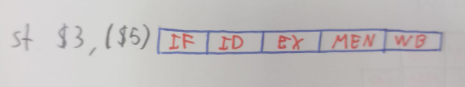 st $3, ($5) IF ID EX MEN WB